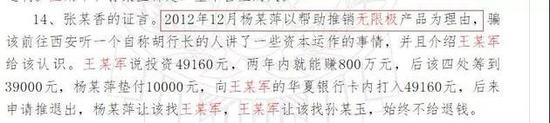 14、张某香的证言。2012年12月杨某萍以帮助推销无限极产品为理由，骗
该前往西安听一个自称胡行长的人讲了一些资本运作的事情，并且介绍王某军
给该认识。王某军说投资49160元，两年内就能赚800万元，后该四处筹到
39000元，杨某萍垫付10000元，向王某军的华夏银行卡内打入49160元，后来
申请推退出，杨某萍让该找王某军，王某军让该找孙某玉，始终不给退钱。